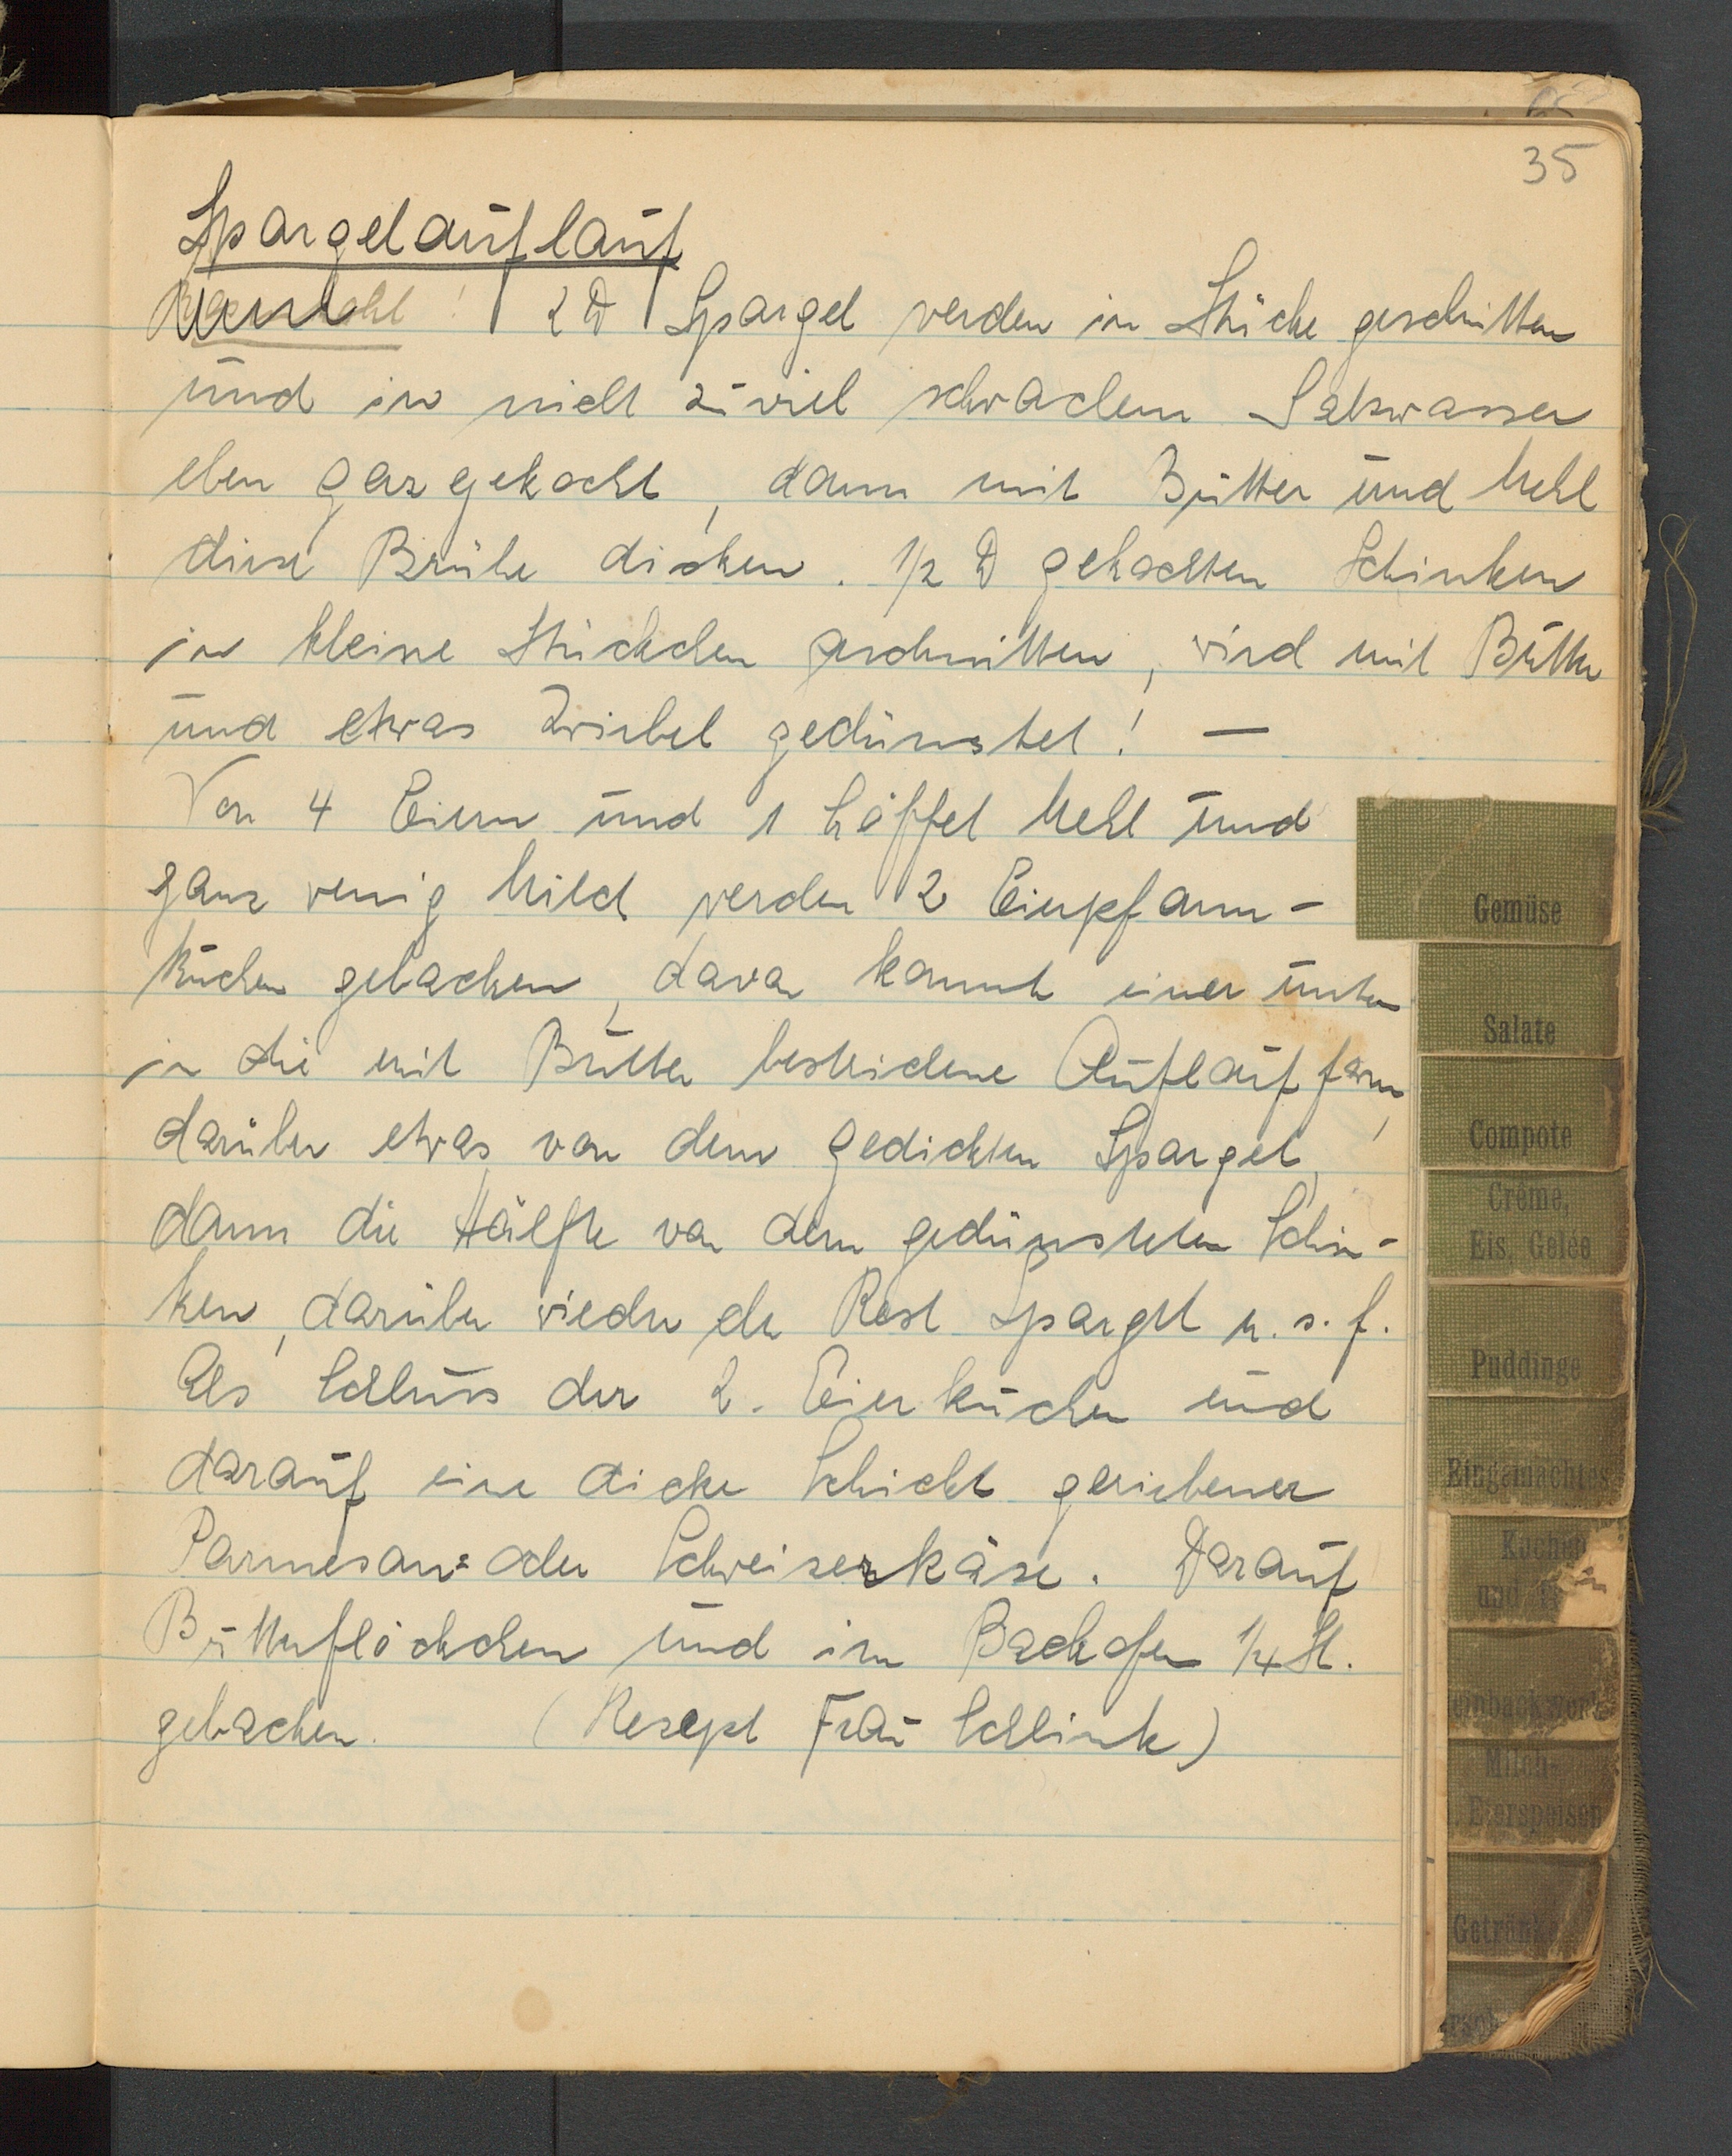 35
Spargelauflauf
2 ℔ Spargel werden in Stücke geschnitten
und in nicht zuviel schwachem Salzwasser
eben gar gekocht, dann mit Butter und Mehl
diese Brühe dicken. 1/2 ℔ gekochten Schinken
in kleine Stückchen geschnitten, wird mit Butter
und etwas Zwiebel gedünstet! —
Von 4 Eiern und 1 Löffel Mehl und
ganz wenig Milch werden 2 Eierpfann-
kuchen gebacken, davon kommt einer unten
in die mit Butter bestrichene Auflaufform,
darüber etwas von dem gedickten Spargel,
dann die Hälfte von dem gedünsteten Schin-
ken, darüber wieder der Rest Spargel u. s. f.
Als Schluss der 2. Eierkuchen und
darauf eine dicke Schicht geriebener
Parmesan= oder Schweizerkäse. Darauf
Butterflöckchen und im Backofen 1/4 St.
gebacken. (Rezept Frau Schlink)
Gemüse
Salate
Compote
Crême,
Eis, Gelée
Puddinge
Eingemachtes
Kuchen
und
Milch-
Eierspeisen
Getränke